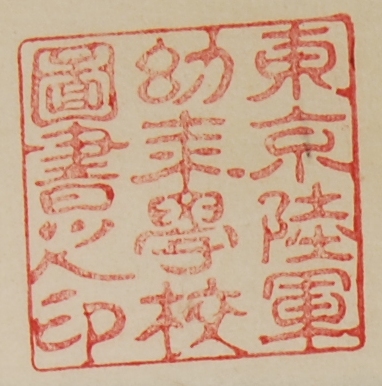 東京陸軍
幼年學校
圖書之印